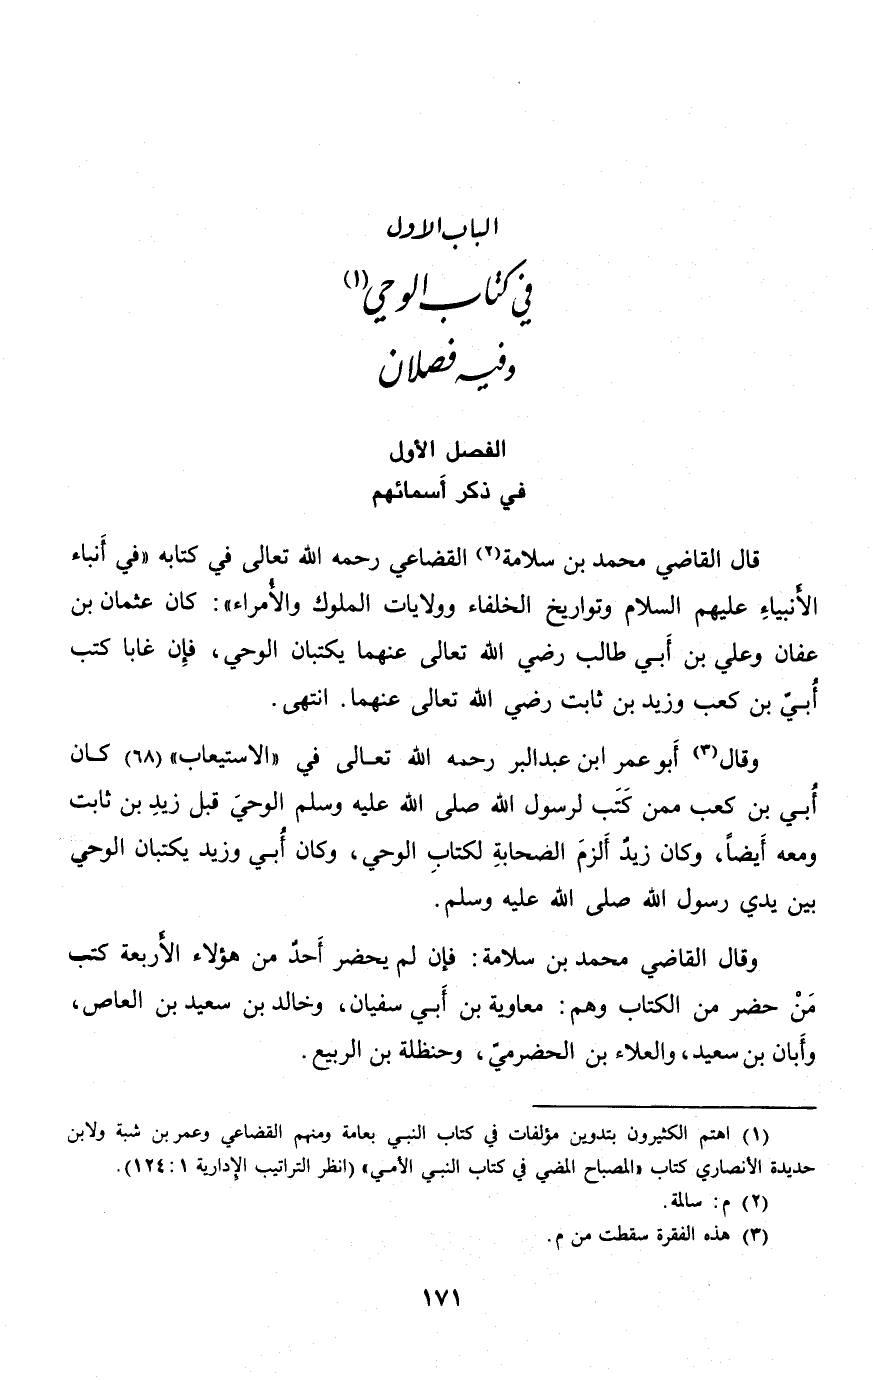 الباب الاول
في كتاب الوحي(١)
وفيه فصلان
الفصل الأول
في ذكر أسمائهم
قال القاضي محمد بن سلامة(٢) القضاعي رحمه الله تعالى في كتابه «في أَنباء
الأَنبياءِ عليهم السلام وتواريخ الخلفاء وولايات الملوك والأُمراء»: كان عثمان بن
عفان وعلي بن أَبي طالب رضي الله تعالى عنهما يكتبان الوحي، فإن غابا كتب
أُبيّ بن كعب وزيد بن ثابت رضي الله تعالى عنهما. انتهى.
وقال(٣) أَبو عمر ابن عبدالبر رحمه الله تعالى في «الاستيعاب» (٦٨) كان
أُبي بن كعب ممن كَتَب لرسول الله صلى الله عليه وسلم الوحيَ قبل زيدِ بن ثابت
ومعه أَيضاً، وكان زيدٌ أَلزمَ الصحابةِ لكتابِ الوحي، وكان أُبي وزيد يكتبان الوحي
بين يدي رسول الله صلى الله عليه وسلم.
وقال القاضي محمد بن سلامة: فإن لم يحضر أَحدٌ من هؤلاء الأَربعة كتب
مَنْ حضر من الكتاب وهم: معاوية بن أَبي سفيان، وخالد بن سعيد بن العاص،
وأَبان بن سعيد، والعلاء بن الحضرميّ، وحنظلة بن الربيع.
(١) اهتم الكثيرون بتدوين مؤلفات في كتاب النبي بعامة ومنهم القضاعي وعمر بن شبة ولابن
حديدة الأنصاري كتاب «المصباح المضي في كتاب النبي الأمي» (انظر التراتيب الإدارية ١: ١٢٤).
(٢) م: سالمة.
(٣) هذه الفقرة سقطت من م.
١٧١